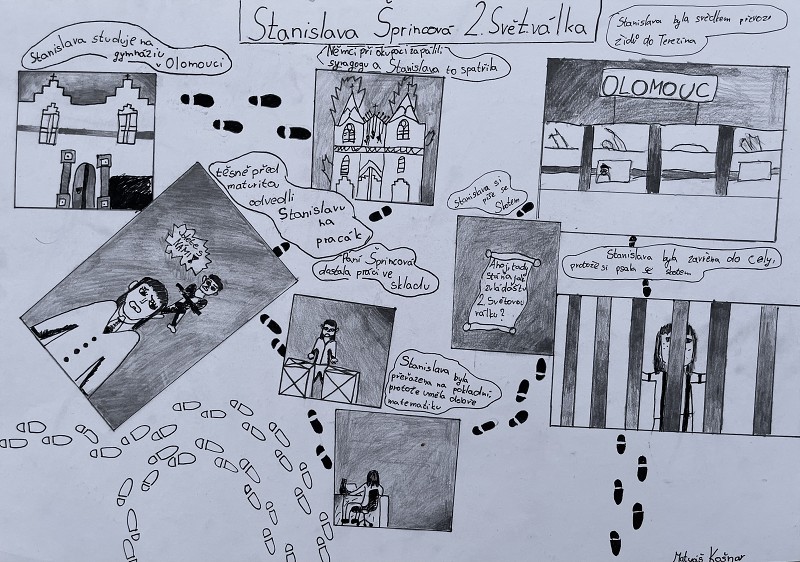 Stanislava Šprincová 2. Svět. válka
Stanislava studuje na
gymnáziu
v Olomouci
Němci při okupaci zapálili
synagogu a Stanislava to spatřila
Stanislava byla svědkem převoze
židů do Terezína
OLOMOUC
těsně před
maturitą
odvedli
Stanislavu
na
pracák
Paní Šprincová
dostala práci ve
skladu
Stanislava byla
přeřazena na pokladní,
protože uměla dobře
matematiku
Stanislava si
píše se
Ahoj, tady
2. Světovou
válku?
Stanislava byla zavřena do cely,
protože si psala se
Matyáš Košnar